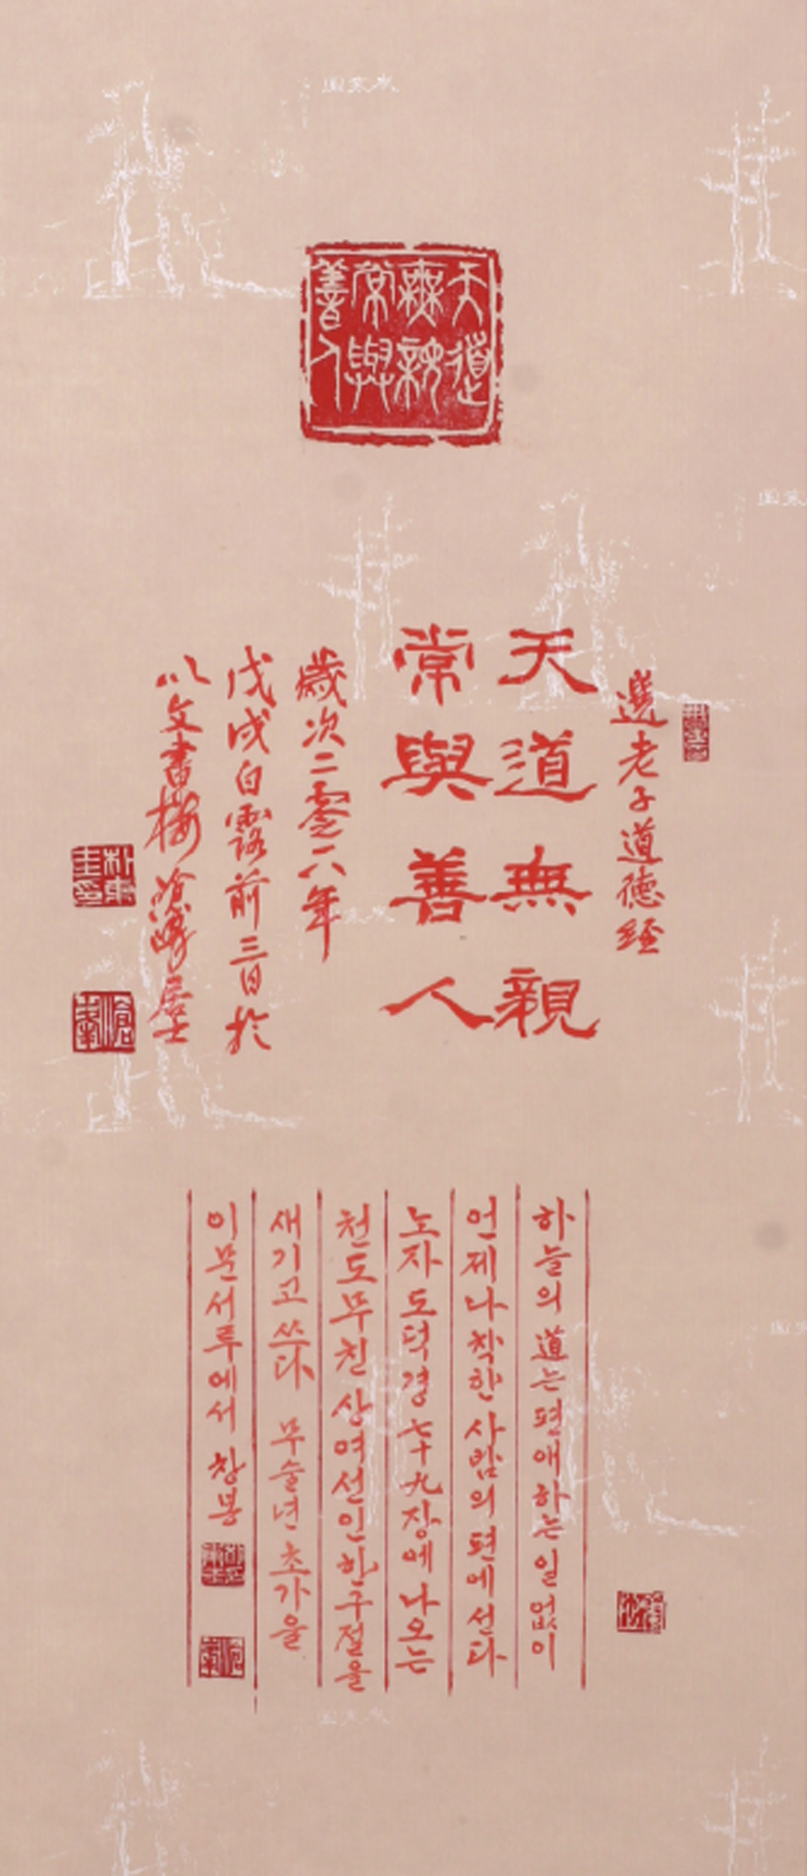 天道
無親
常與
善人
選老子道德經
天道無親
常與善人
歲次二零一八年
戊戌白露前三日於
以文書樓 滄峰居士
하늘의 道는 편애하는 일 없이
언제나 착한 사람의 편에 선다
노자도덕경 七十九장에 나오는
천도무친 상여선인 한구절을
새기고 쓰다 무술년 초가을
이문서루에서 창봉